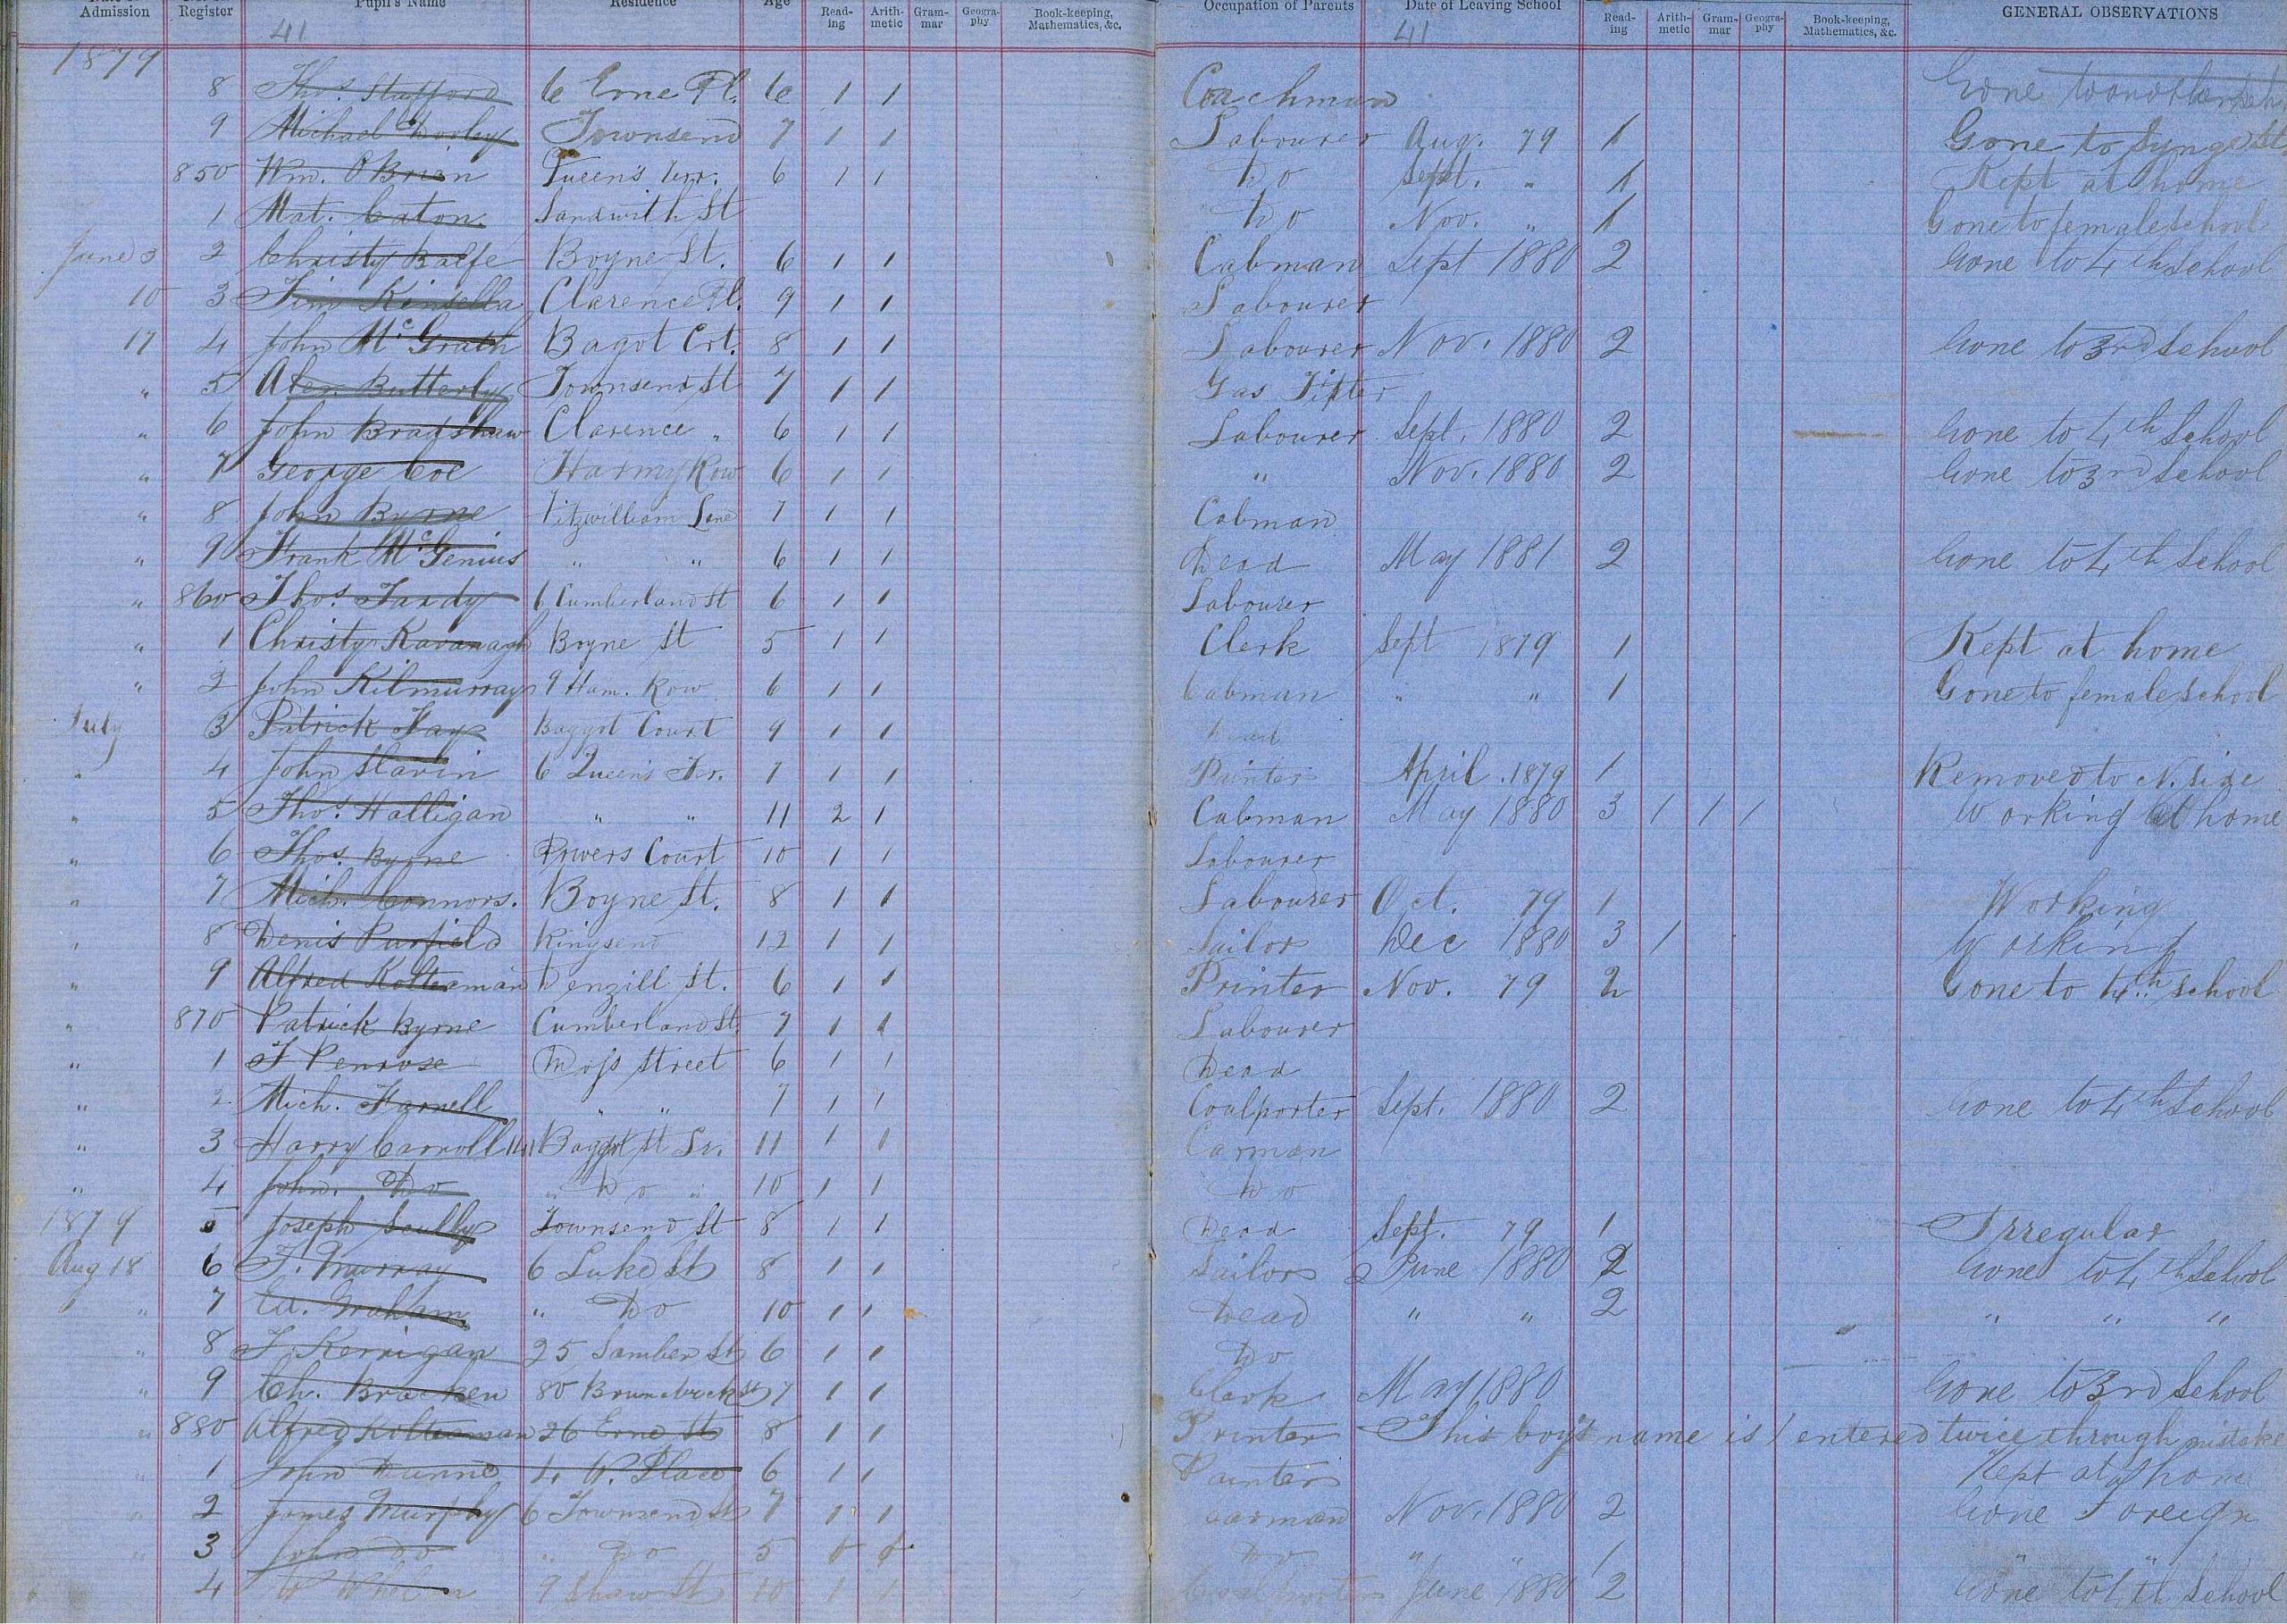 Admission Register Pupil's Name Residence Age Read-ing Arith-metic Gram-mar Geogra-phy Book-keeping, Mathematics, &c. Occupation of Parents Date of Leaving School Read-ing Arith-metic Gram-mar Geogra-phy Book-keeping, Mathematics, &c. GENERAL OBSERVATIONS
41 41
1879
8 Thos. Stafford 6 Erne Pl. 6 1 1 Coachman Gone to another Sch
9 Michael Dorley Townsend 7 1 1 Labourer Aug. 79 1 Gone to Synge St
850 Wm. O'Brien Queen's Terr. 6 1 1 Do Sept. " 1 Kept at home
1 Mat. Caton. Sandwith St Do Nov. " 1 Gone to female school
June 3 2 Christy Balfe Boyne St. 6 1 1 Cabman Sept 1880 2 Gone to 4th School
10 3 Jim Kinsella Clarence Pl. 9 1 1 Labourer
17 4 John McGrath Bagot Crt. 8 1 1 Labourer Nov. 1880 2 Gone to 3rd School
" 5 Alex. Butterly Townsend St 7 1 1 Gas Fitter
" 6 John Bradshaw Clarence " 6 1 1 Labourer Sept. 1880 2 Gone to 4th School
" 7 George Coe Harmy Row 6 1 1 " Nov. 1880 2 Gone to 3rd School
" 8 John Byrne Fitzwilliam Lane 7 1 1 Cabman
" 9 Frank McGenius " " 6 1 1 Dead May 1881 2 Gone to 4th School
" 860 Thos. Tardy 6 Cumberland St 6 1 1 Labourer
" 1 Christy Kavanagh Boyne St 5 1 1 Clerk Sept 1879 1 Kept at home
" 2 John Kilmurray 9 Ham. Row 6 1 1 Cabman " " 1 Gone to female school
July 3 Patrick Fay Baggot Court 9 1 1 Dead
" 4 John Slavin 6 Queen's Ter. 7 1 1 Painter April. 1879 1 Removed to N. side
" 5 Thos. Halligan " " 11 2 1 Cabman May 1880 3 1 1 1 Working at home
" 6 Thos. Byrne Powers Court 10 1 1 Labourer
" 7 Mich. Connors. Boyne St. 8 1 1 Labourer Oct. 79 1 Working
" 8 Denis Purfield Ringsend 12 1 1 Sailor Dec 1880 3 1 Working
" 9 Alfred Kolterman Denzill St. 6 1 1 Printer Nov. 79 2 Gone to 4th school
" 870 Patrick Byrne Cumberland St. 7 1 1 Labourer
" 1 J Penrose Moss Street 6 1 1 Dead
" 2 Mich. Farnell " " 7 1 1 Coalporter Sept. 1880 2 Gone to 4th School
" 3 Harry Carroll 141 Baggot St Lr. 11 1 1 Carman
" 4 John. Do " Do " 10 1 1 Do
1879 5 Joseph Scully Townsend St 8 1 1 Dead Sept. 79 1 Irregular
Aug 18 6 J. Murray 6 Luke St 8 1 1 Sailor June 1880 2 Gone to 4th School
" 7 Ed. Graham " Do 10 1 1 Dead " " 2 " " "
" 8 J. Kerrigan 25 Samber St 6 1 1 Do
" 9 Ch. Bracken 80 Brunswick St 7 1 1 Clerk May 1880 Gone to 3rd School
" 880 Alfred Kolterman 26 Erne St 8 1 1 Printer This boy's name is entered twice through mistake
" 1 John Dunne 4 W. Place 6 1 1 Painter Kept at home
" 2 James Murphy 6 Townsend St 7 1 1 Carman Nov. 1880 2 Gone Foreign
" 3 John Do " Do 5 Do " " 1 " "
" 4 W Whelan 9 Shaw St 10 1 1 Coalporter June 1880 2 Gone to 4th School